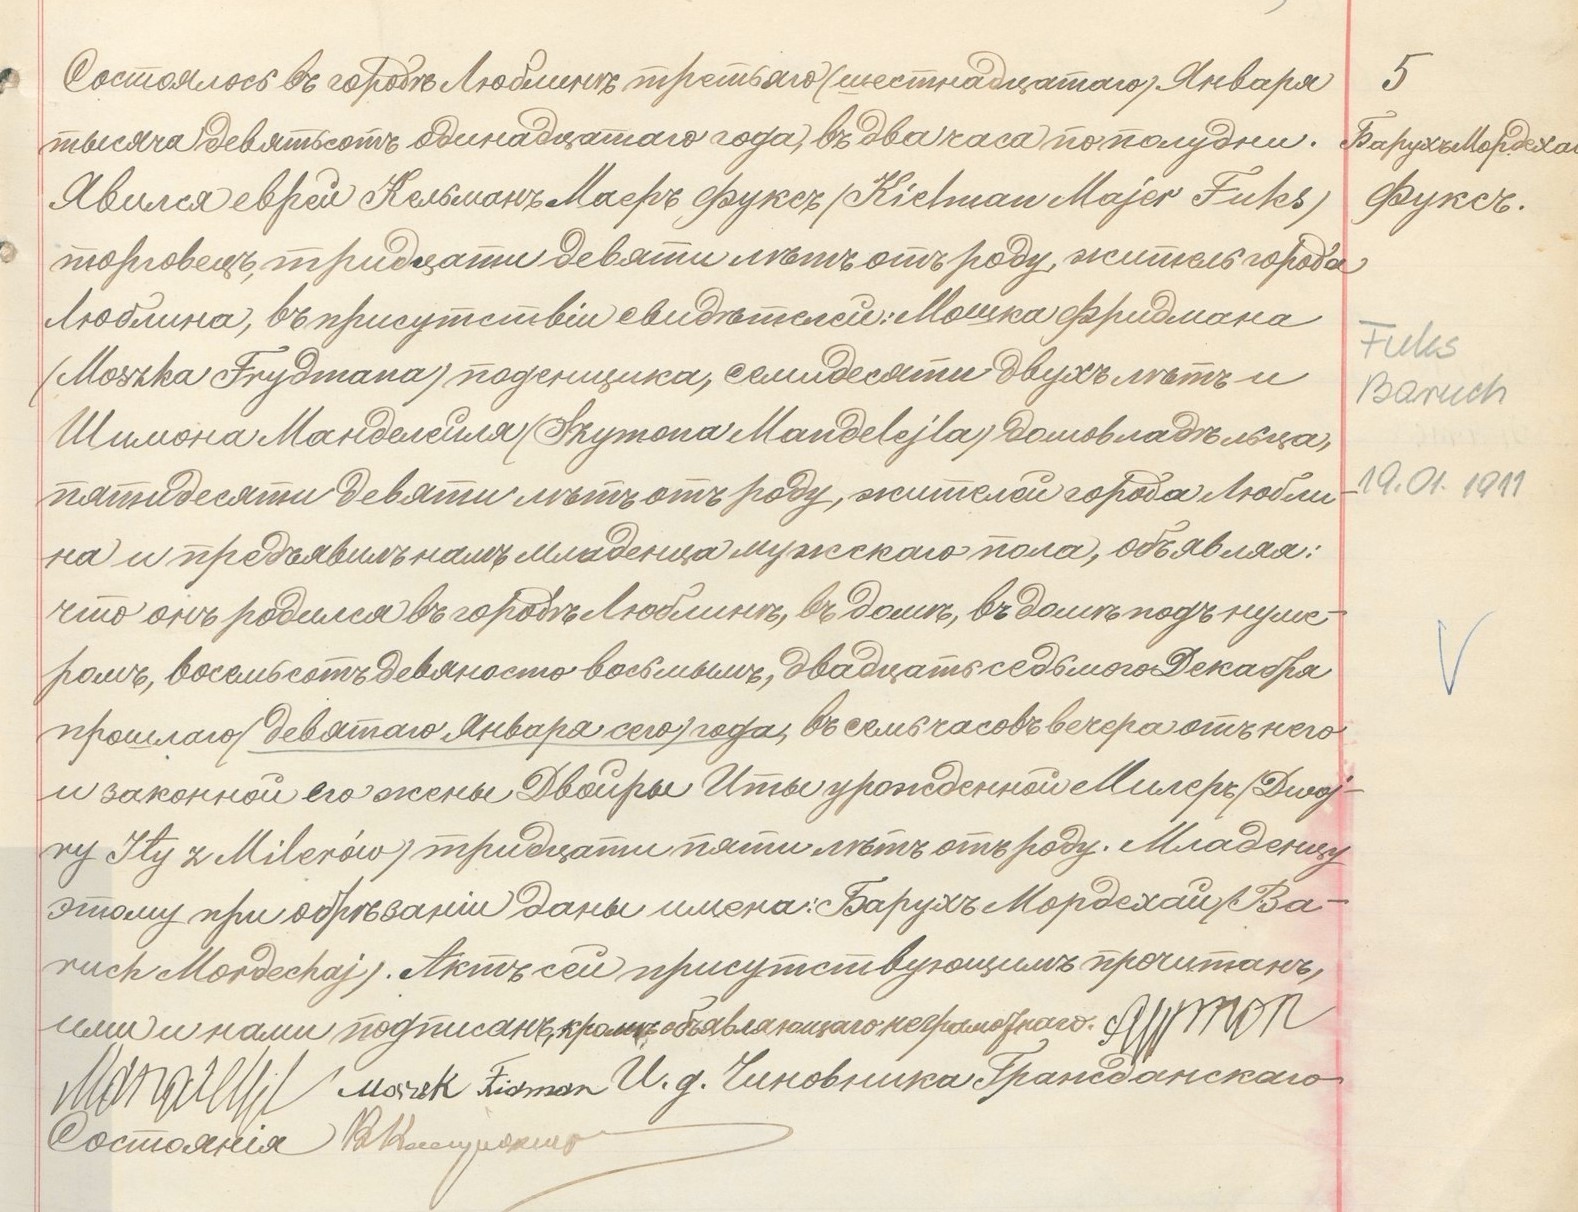 Состоялось въ городѣ Люблинѣ третьяго (шестнадцатаго) Января
тысяча девятьсотъ одинадцатаго года, въ два часа по полудни.
Явился еврей Кельманъ Маеръ Фуксъ (Kielman Majer Fuks)
торговецъ, тридцати девяти лѣтъ отъ роду, житель города
Люблина, въ присутствіи свидѣтелей: Мошка Фридмана
(Moszka Frydmana) поденщика, семидесяти двухъ лѣтъ и
Шимона Манделейля (Szymona Mandelejla) домовладѣльца,
пятидесяти девяти лѣтъ отъ роду, жителей города Любли-
на и предъявилъ намъ младенца мужскаго пола, объявляя:
что онъ родился въ городѣ Люблинѣ, въ домѣ, въ домѣ подъ нуме-
ромъ, восемьсотъ девяносто восьмымъ, двадцать седьмого Декабря
прошлаго (девятаго Января сего) года, въ семь часовъ вечера отъ него
и законной его жены Двойры Иты урожденной Милеръ (Dwoj-
ry Ity z Milerów) тридцати пяти лѣтъ отъ роду. Младенцу
этому при обрѣзаніи даны имена: Барухъ Мордехай (Ba-
ruch Mordechaj). Актъ сей присутствующимъ прочитанъ,
ими и нами подписанъ, кромѣ объявляющаго неграмотнаго.
И. д. Чиновника Гражданскаго
Состоянія
5
Барухъ Мордехай
Фуксъ.
Fuks
Baruch
19.01.1911